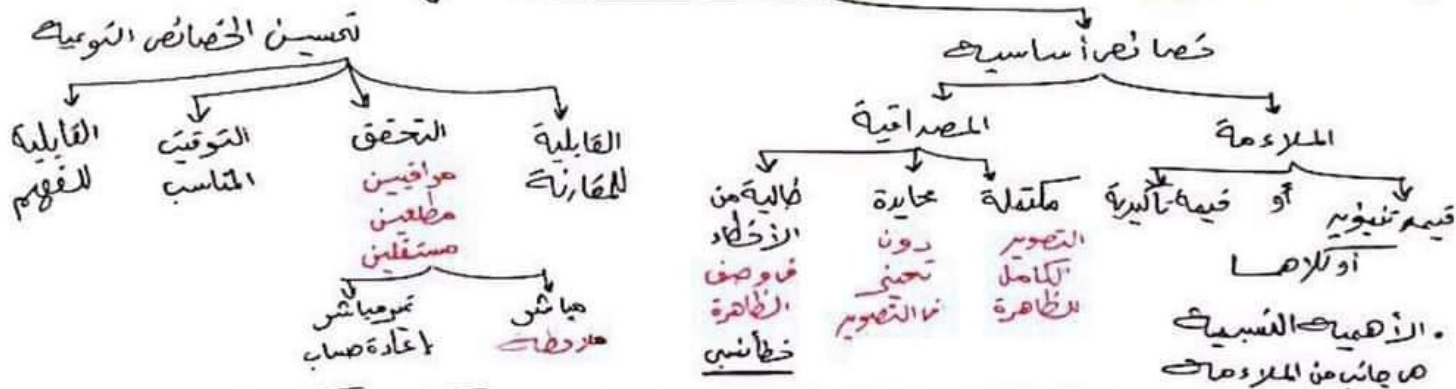 خصائص أساسية
تحسين الخصائص النوعية
الملاءمة
المصداقية
قيمة تنبؤية أو قيمة تأكيدية
أو كلاهما
. الأهمية النسبية
هي جانب من الملاءمة
مكتملة
التصوير
الكامل
للظاهرة
محايدة
دون
تحيز
في التصوير
خالية من
الأخطاء
في وصف
الظاهرة
خطأ نسبي
القابلية
للمقارنة
التحقق
مراقبين
مطلعين
مستقلين
مباشر
ملاحظة
غير مباشر
إعادة حساب
التوقيت
المناسب
القابلية
للفهم